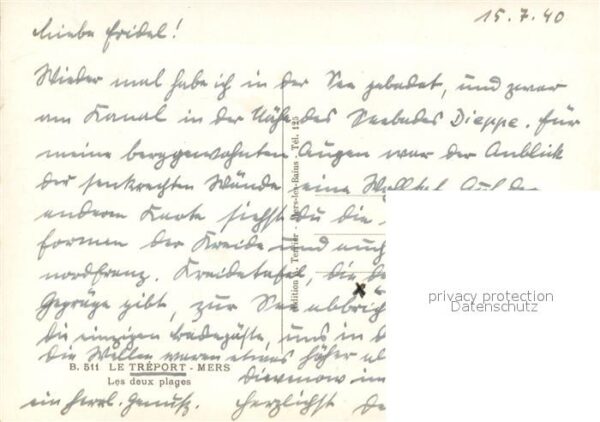 15.7.40
Liebe Fridel!
Wieder mal habe ich in der See gebadet, und zwar
am Kanal in der Nähe des Seebades Dieppe. Für
meine berggewohnten Augen war der Anblick
der senkrechten Wände eine Wohltat. Auf der
anderen Karte siehst Du die
formen der Kreide und auch
nordfranz. Kreidetafel, die
Gepräge gibt, zur See abbrich
die einzigen Badegäste, uns in d
Die Wellen waren etwas höher al
Dievenow im
ein herrl. Genuß. Herzlichst De
B. 511 LE TRÉPORT - MERS
Les deux plages
Edition A. Terrier - Mers-les-Bains - Tél. 125
privacy protection
Datenschutz